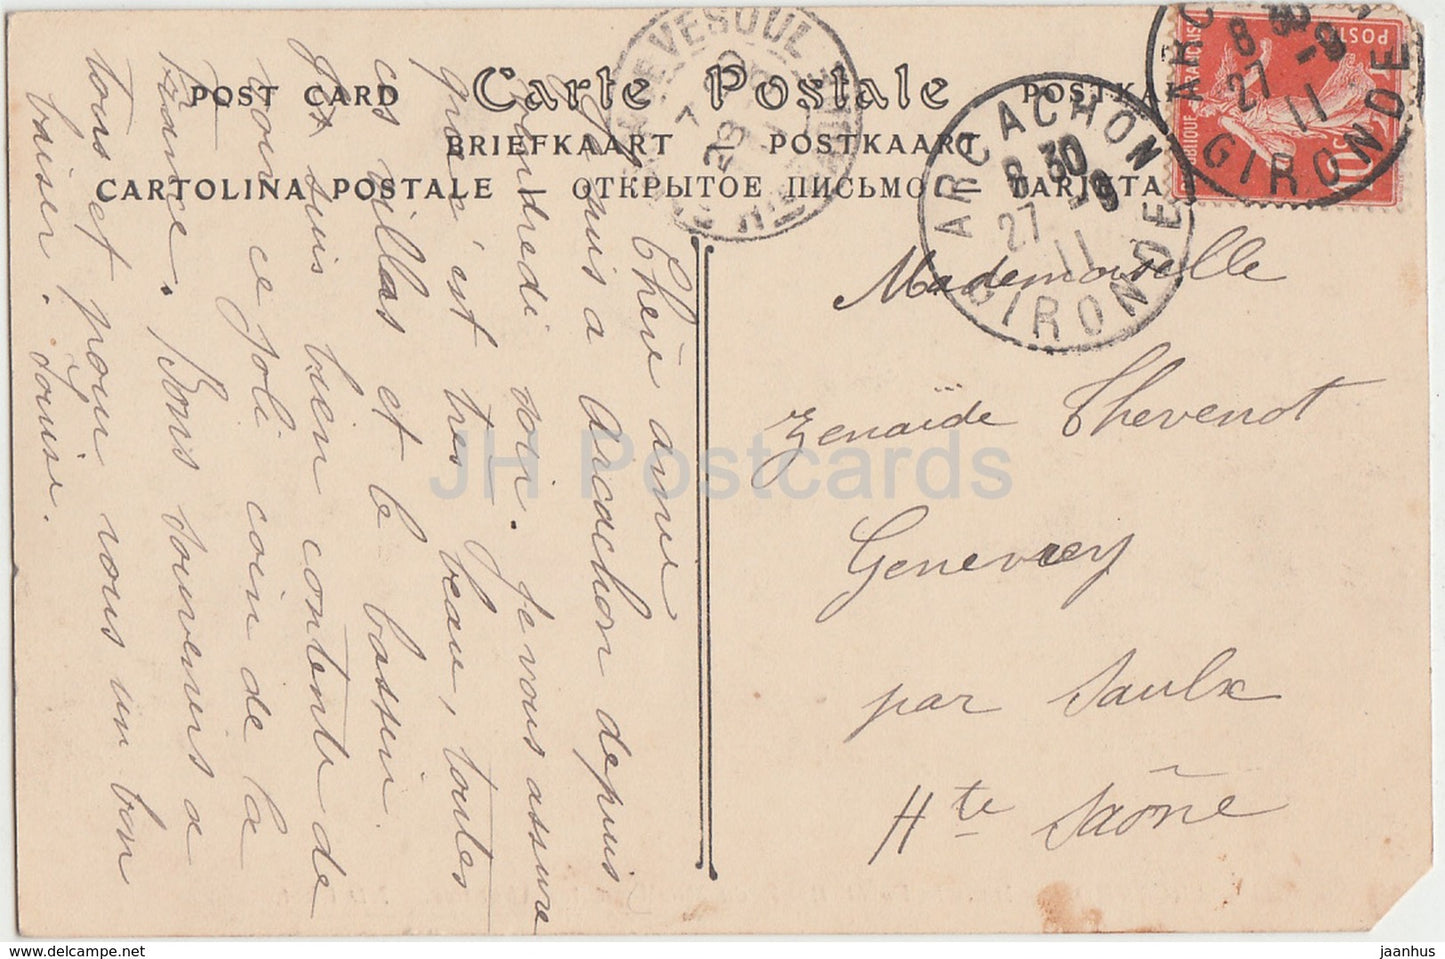 POST CARD Carte Postale POSTKA
BRIEFKAART – POSTKAART
CARTOLINA POSTALE – ОТКРЫТОЕ ПИСЬМО – TARJETA
Chère amie
Je suis a Arcachon depuis
vendredi soir. Je vous assure
que c'est très beau, toutes
ces villas et le bassin.
Je suis bien contente de
voir ce joli coin de la
France. Bons souvenirs a
tous et pour vous un bon
baiser. Louise.
Mademoiselle
Zenaïde Thevenot
Genevrey
par Saulx
Hte Saône
ARCACHON
8 30
27 -9
11
GIRONDE
ARC
8 30
27 -9
11
GIRONDE
POSTE
REPUBLIQUE FRANÇAISE
10c
VESOUL
7
28
JH Postcards
www.delcampe.net
jaanhus